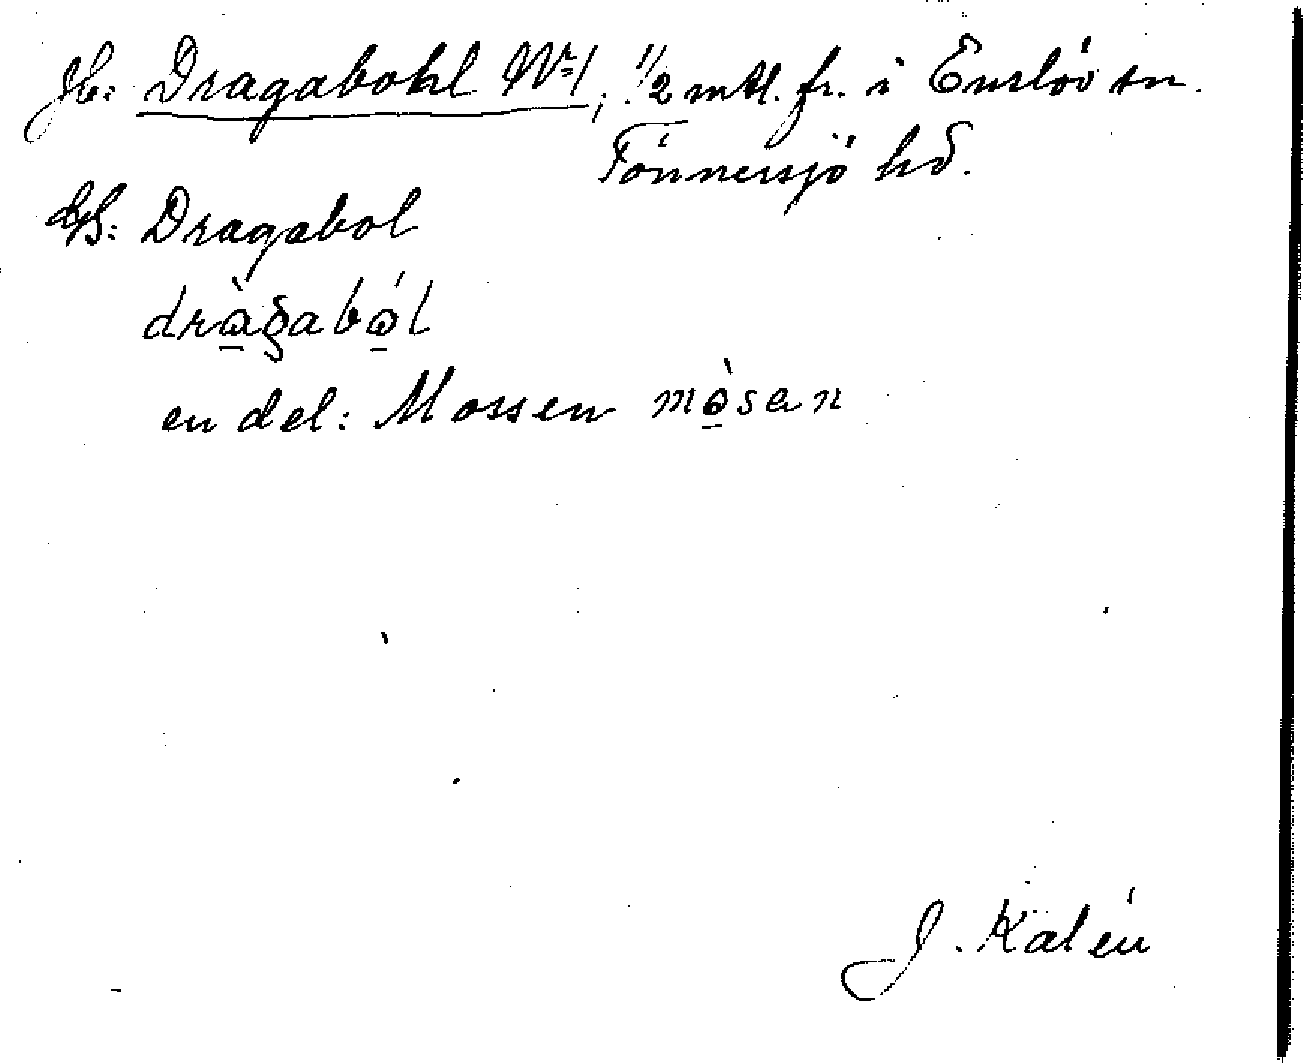 Jb: Dragabohl Nr 1, 1/2 mtl. fr. i Enslöv sn.
Tönnersjö hd.
Dragabol
dràgabål
en del: Mossen mòsan
J. Kalén